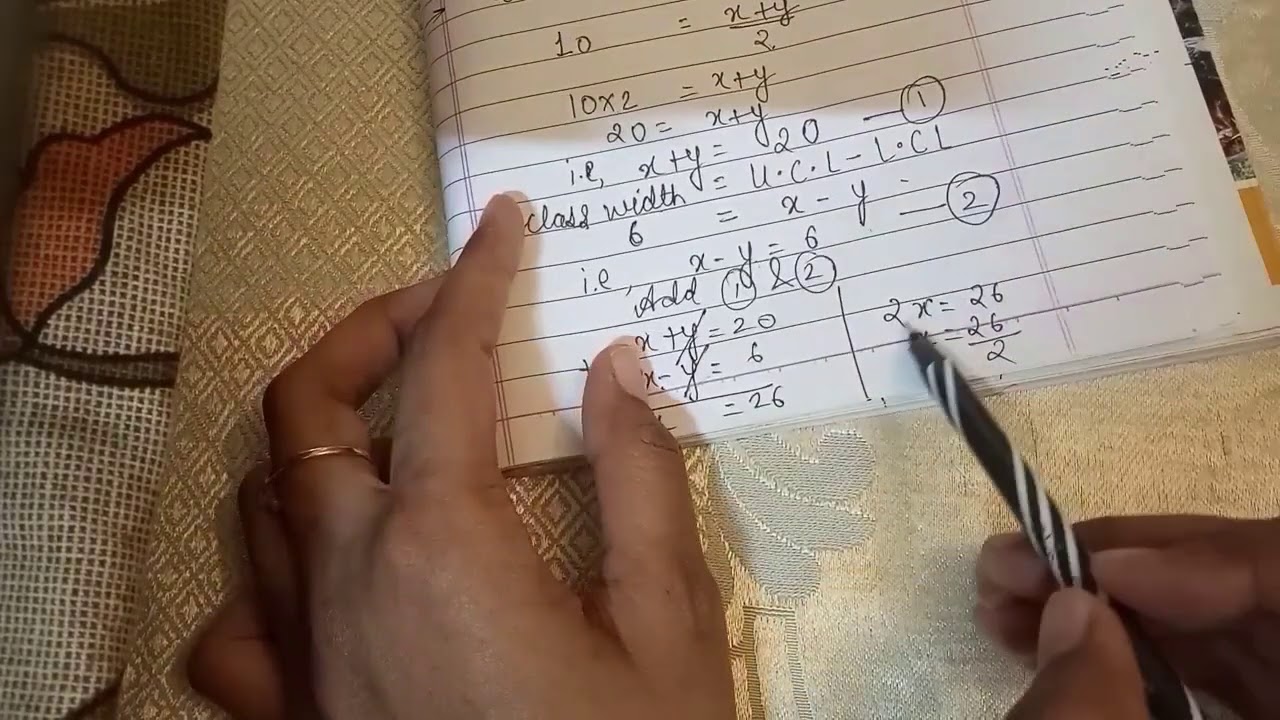 10 = x+y/2
10×2 = x+y
20 = x+y
i.e, x+y = 20 — ①
class width = U.C.L - L.C.L
6 = x - y — ②
i.e, x - y = 6
Add ① & ②
x + y = 20
x - y = 6
= 26
2x = 26
= 26/2